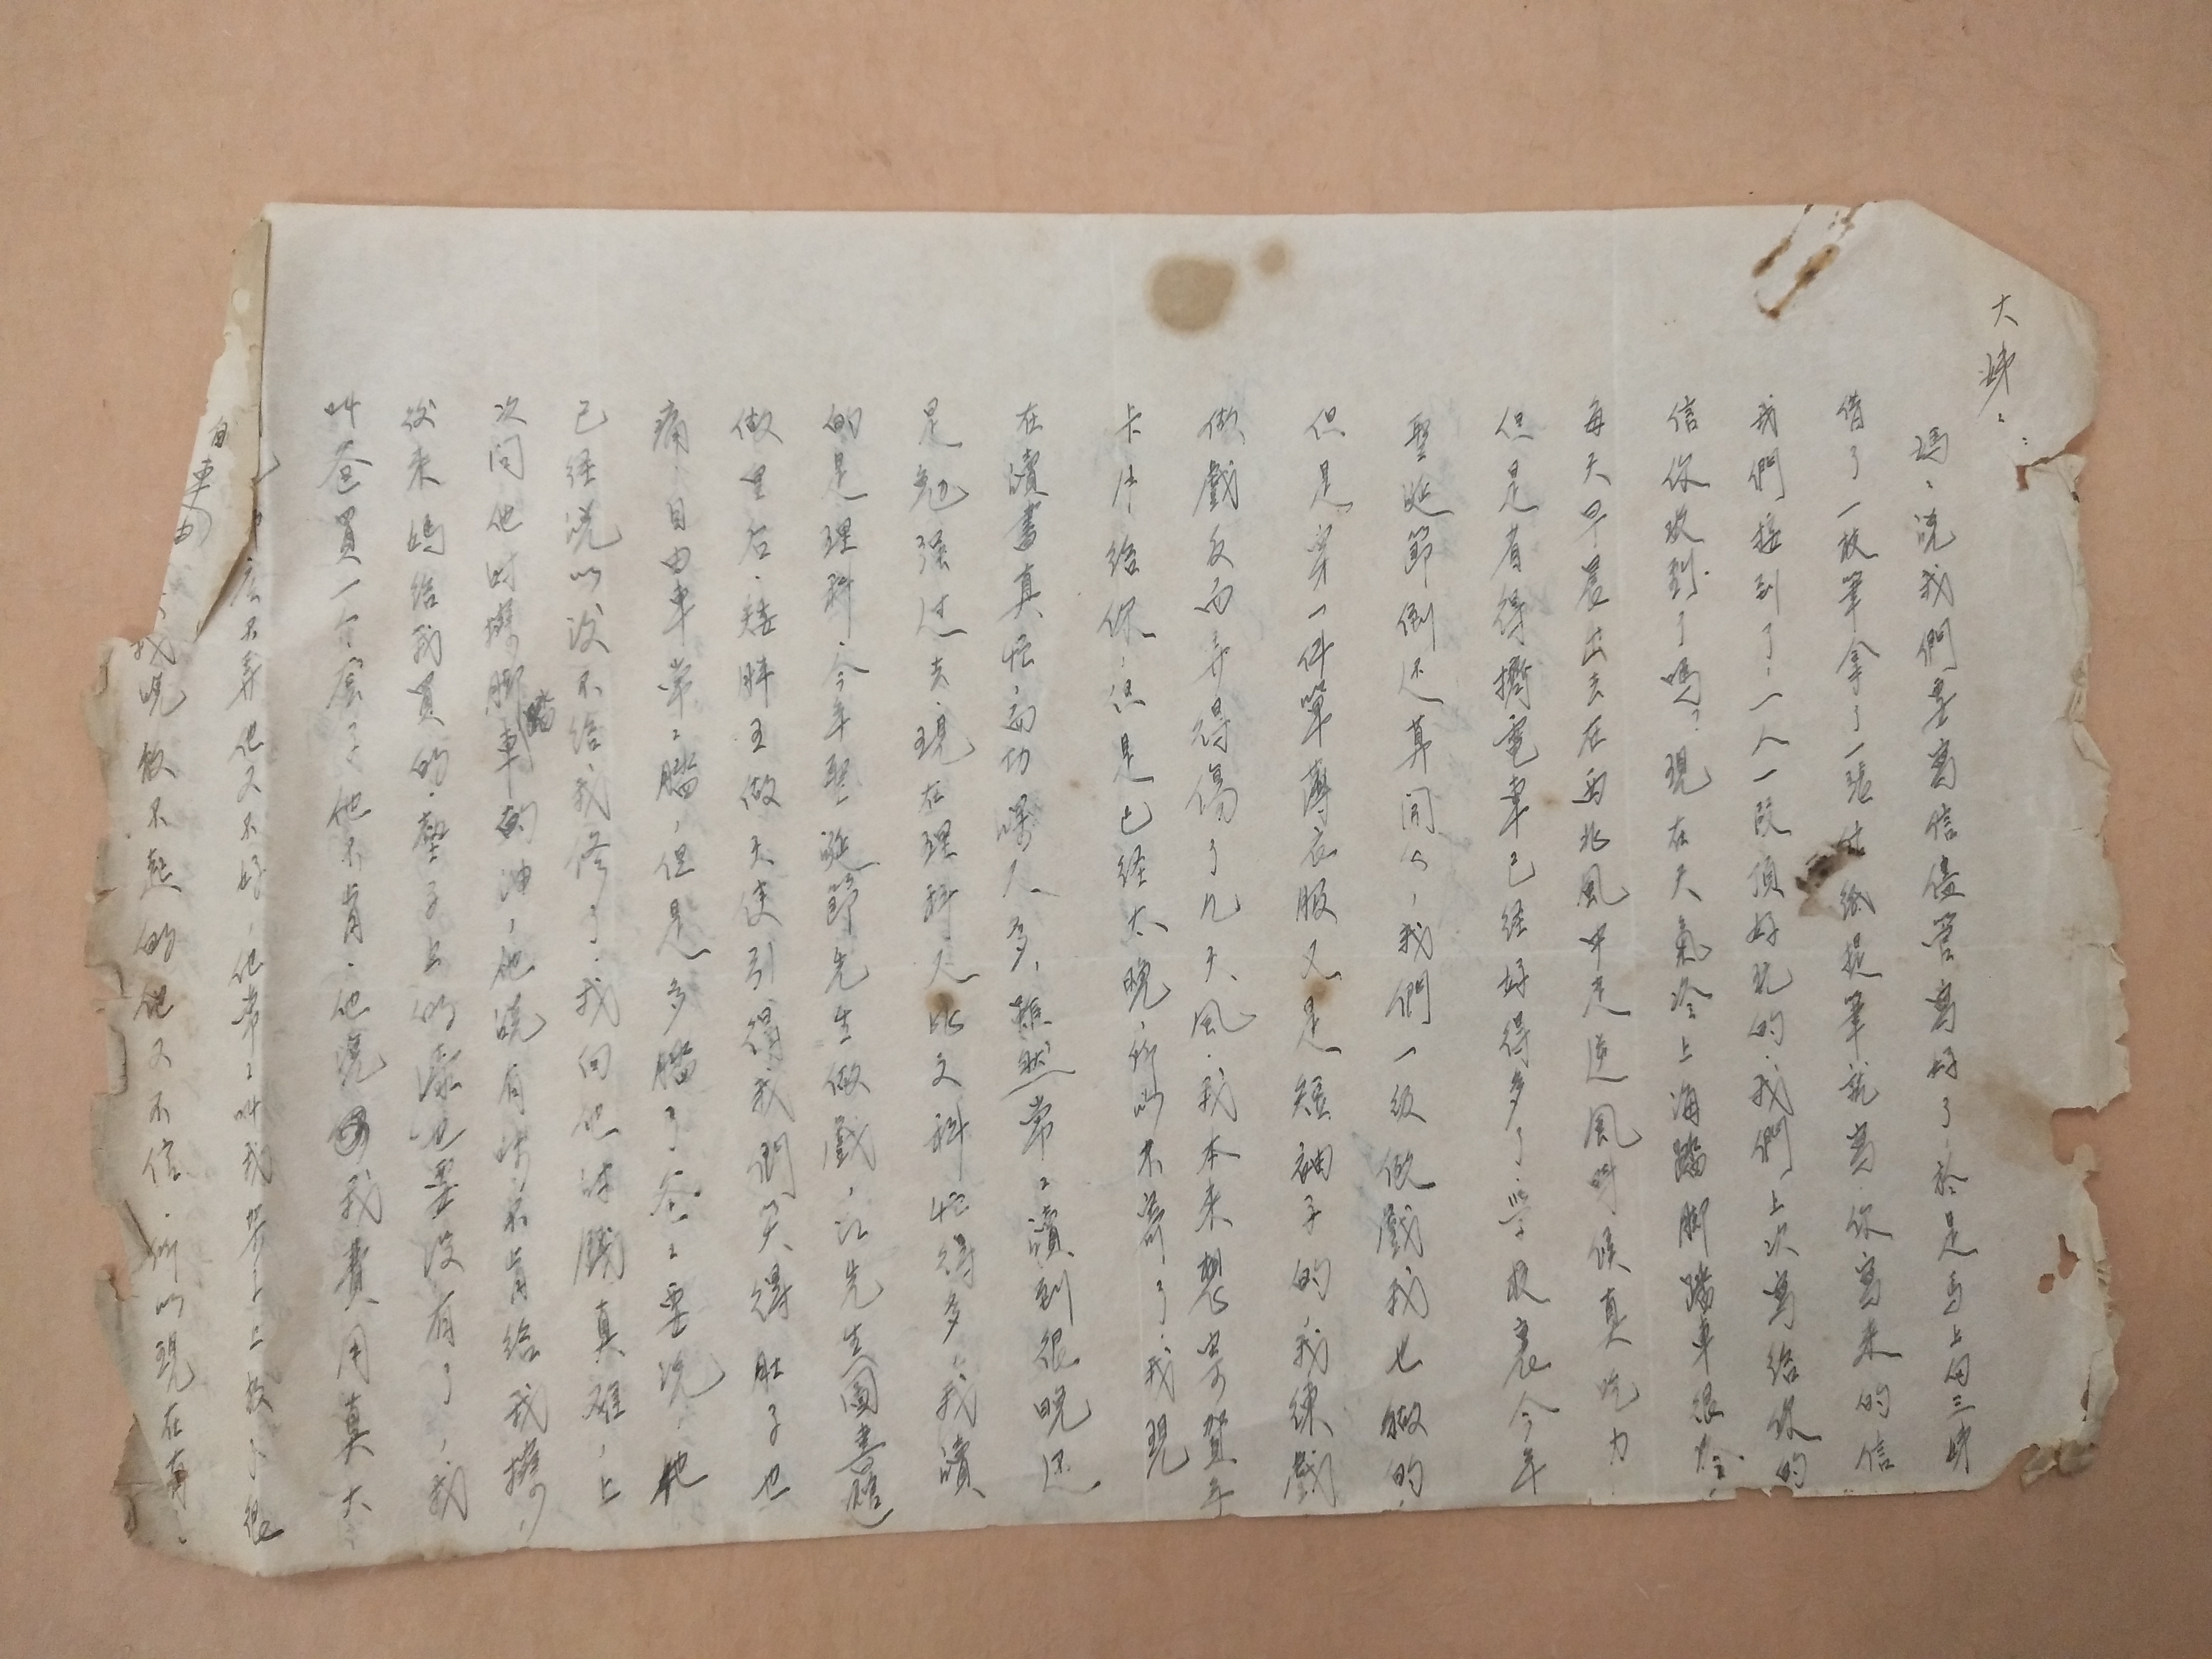 大姊:
媽:說我們要寫信儘管寫好了.於是馬上向三姊
借了一枝筆拿了一張紙提筆就寫.你寫來的信
我們接到了!一人一段頂好玩的.我們上次寫給你的
信你收到了嗎?現在天氣冷上海踏脚踏車很冷.
每天早晨出去在西北風中走逆風時候真吃力
但是有得擠電車已经好得多了.學校裏今年
聖诞節倒还算開心,我們一级做戲我也做的,
但是穿一件單薄衣服又是短袖子的,我練戲
做戲反而弄得傷了几天風.我本来想寄賀年
卡片给你,但是已经太晚,所以不寄了.我現
在讀書真忙,而功課又多,雖然常:讀到很晚还
是勉强过去.現在理科是比文科忙得多,我讀
的是理科.今年聖诞節先生做戲,江先生圖書館
做皇后.矮胖王做天使引得我們笑得肚子也
痛.自由車常:踏,但是多踏了爸:要说,他
已经说以後不给我修了.我向他討錢真难,上
次问他討搽脚踏車的油,他說有時不肯给我搽,
後来媽给我買的.鏧子上的漆也要没有了,我
叫爸買一个套子他不肯.他说我費用真大.
不弄他又不好.他常:叫我架上上披了.很
我说披不起的他又不信.所以現在有:
自
車
由